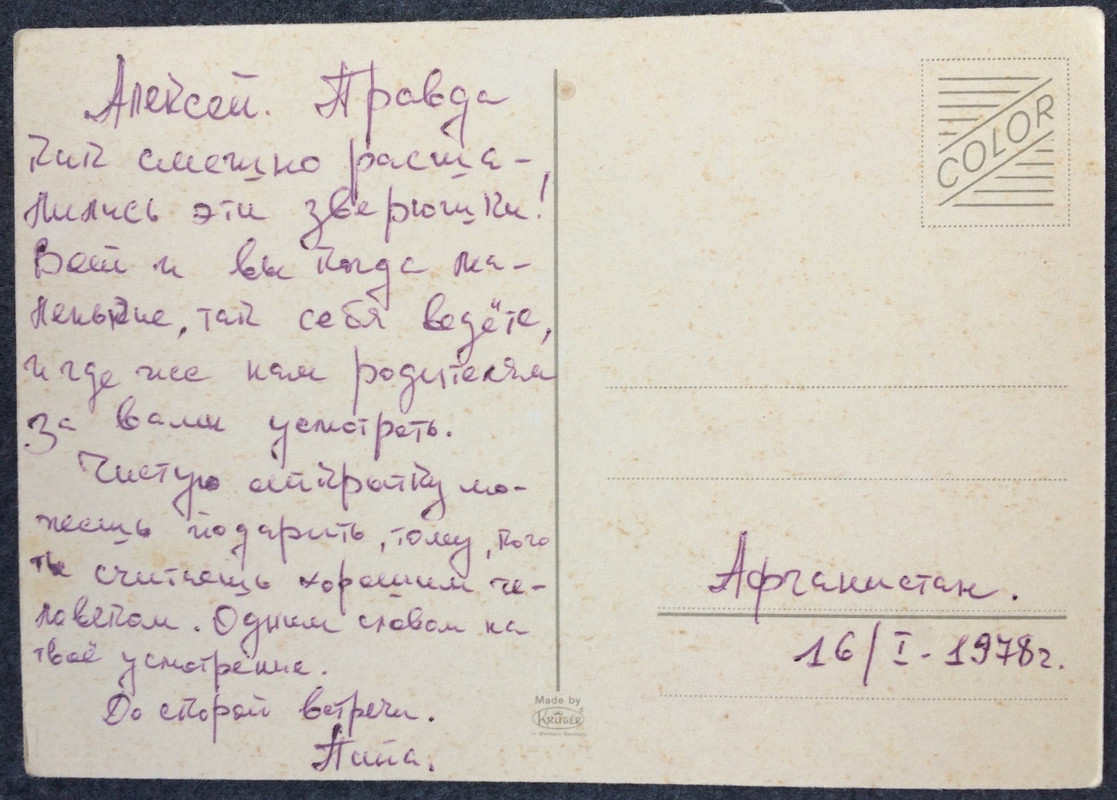 Алексей. Правда
как смешно расша-
лились эти зверюшки!
Вот и вы когда ма-
ленькие, так себя ведёте,
и где же нам родителям
за вами усмотреть.
Чистую открытку мо-
жешь подарить, тому, кого
ты считаешь хорошим че-
ловеком. Одним словом на
твоё усмотрение.
До скорой встречи.
Папа.
COLOR
Афганистан.
16/I-1978г.
Made by
KRÜGER
in Western Germany